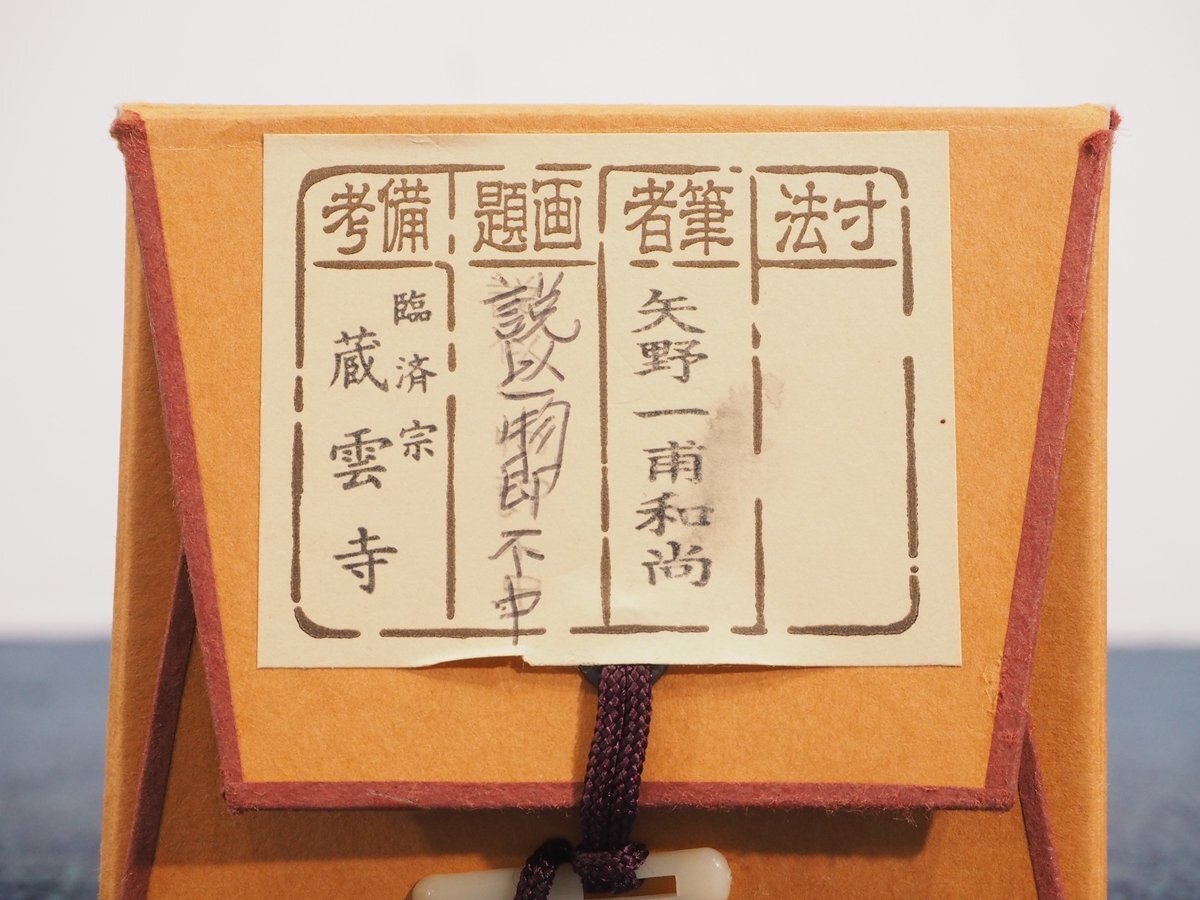 寸法
筆者
矢野一甫和尚
画題
説以一物即不中
備考
臨済宗
蔵雲寺